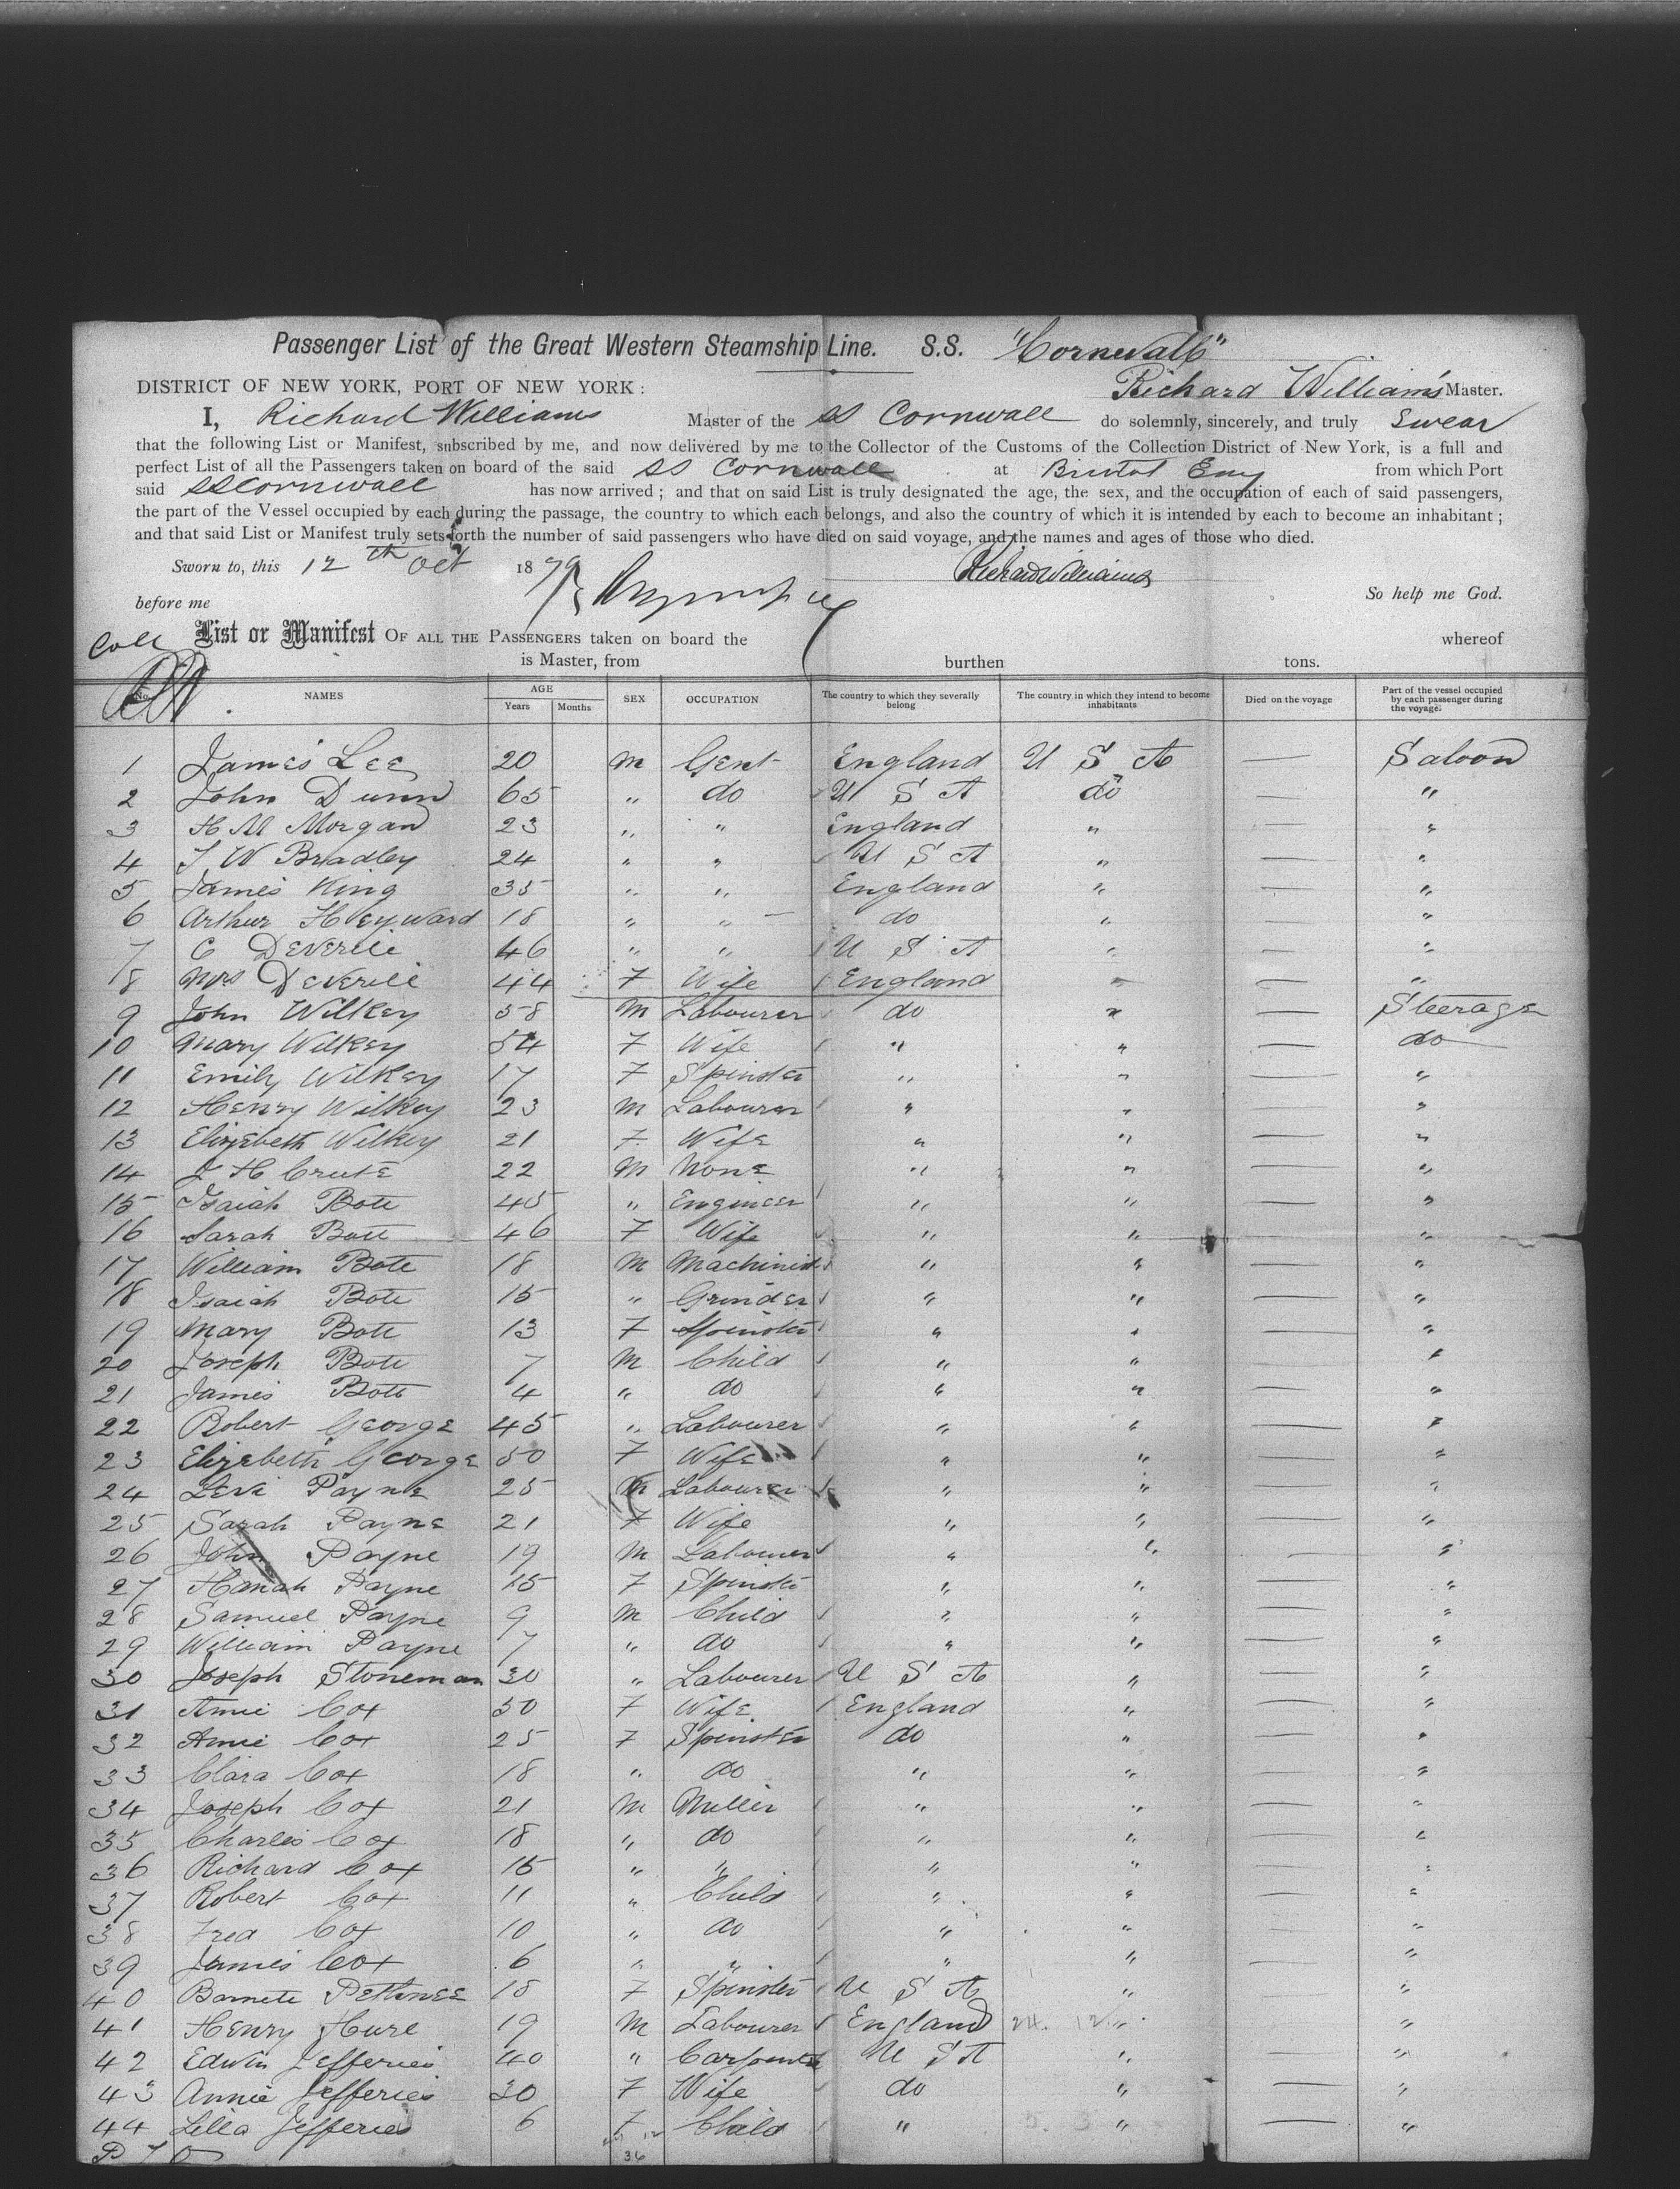 Passenger List of the Great Western Steamship Line. S.S. "Cornwall"
DISTRICT OF NEW YORK, PORT OF NEW YORK: Richard Williams Master.
I, Richard Williams Master of the SS Cornwall do solemnly, sincerely, and truly Swear
that the following List or Manifest, subscribed by me, and now delivered by me to the Collector of the Customs of the Collection District of New York, is a full and
perfect List of all the Passengers taken on board of the said SS Cornwall at Bristol Eng from which Port
said SS Cornwall has now arrived; and that on said List is truly designated the age, the sex, and the occupation of each of said passengers,
the part of the Vessel occupied by each during the passage, the country to which each belongs, and also the country of which it is intended by each to become an inhabitant;
and that said List or Manifest truly sets forth the number of said passengers who have died on said voyage, and the names and ages of those who died.
Sworn to, this 12th Oct 1879 Richard Williams
before me So help me God.
List or Manifest OF ALL THE PASSENGERS taken on board the whereof
is Master, from burthen tons.
No. NAMES AGE Years Months SEX OCCUPATION The country to which they severally belong The country in which they intend to become inhabitants Died on the voyage Part of the vessel occupied by each passenger during the voyage.
1 James Lee 20 M Gent England U S A — Saloon
2 John Dunn 65 " do U S A do — "
3 H M Morgan 23 " " England " — "
4 J W Bradley 24 " " U S A " — "
5 James King 35 " " England " — "
6 Arthur Heyward 18 " " do " — "
7 C Deverell 46 " " U S A " — "
8 Mrs Deverell 44 F Wife England " — "
9 John Wilkey 58 M Labourer do " — Steerage
10 Mary Wilkey 54 F Wife " " — do
11 Emily Wilkey 17 F Spinster " " — "
12 Henry Wilkey 23 M Labourer " " — "
13 Elizebeth Wilkey 21 F Wife " " — "
14 J H Crute 22 M None " " — "
15 Isaiah Bott 45 " Engineer " " — "
16 Sarah Bott 46 F Wife " " — "
17 William Bott 18 M Machinist " " — "
18 Isaiah Bott 15 " Grinder " " — "
19 Mary Bott 13 F Spinster " " — "
20 Joseph Bott 7 M Child " " — "
21 James Bott 4 " do " " — "
22 Robert George 45 " Labourer " " — "
23 Elizebeth George 50 F Wife " " — "
24 Levi Payne 25 M Labourer " " — "
25 Sarah Payne 21 F Wife " " — "
26 John Payne 19 M Labourer " " — "
27 Hanah Payne 15 F Spinster " " — "
28 Samuel Payne 9 M Child " " — "
29 William Payne 7 " do " " — "
30 Joseph Stoneman 30 " Labourer U S A " — "
31 Annie Cox 50 F Wife England " — "
32 Annie Cox 25 F Spinster do " — "
33 Clara Cox 18 " do " " — "
34 Joseph Cox 21 M Miller " " — "
35 Charles Cox 18 " do " " — "
36 Richard Cox 15 " " " " — "
37 Robert Cox 11 " Child " " — "
38 Fred Cox 10 " do " " — "
39 James Cox 6 " " " " — "
40 18 F Spinster U S A " — "
41 Henry Hure 19 M Labourer England " — "
42 Edwin Jefferies 40 " Carpenter U S A " — "
43 Annie Jefferies 30 F Wife do " — "
44 Lilla Jefferies 6 F Child " " — "
P T O 36